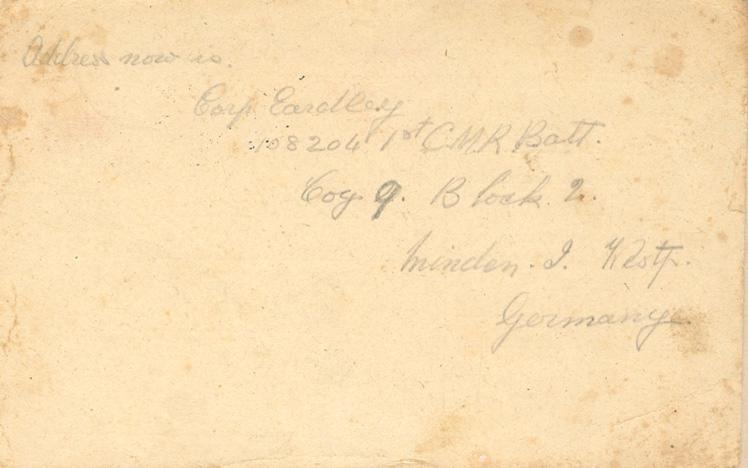 Address now is.
Corp. Eardley
108204 1st C.M.R Batt.
Coy 9. Block 2.
Minden. I.
Germany.